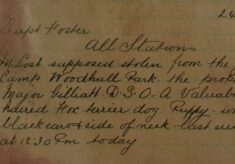 24
Supt Foster
All Stations
Lost supposed stolen from the
Camp Woodhall Park. The prop
Major Gilliatt D.S.O. A Valuab
haired Fox terrier dog Puppy. w
black ears & side of neck. Last see
at 12.30 Pm today